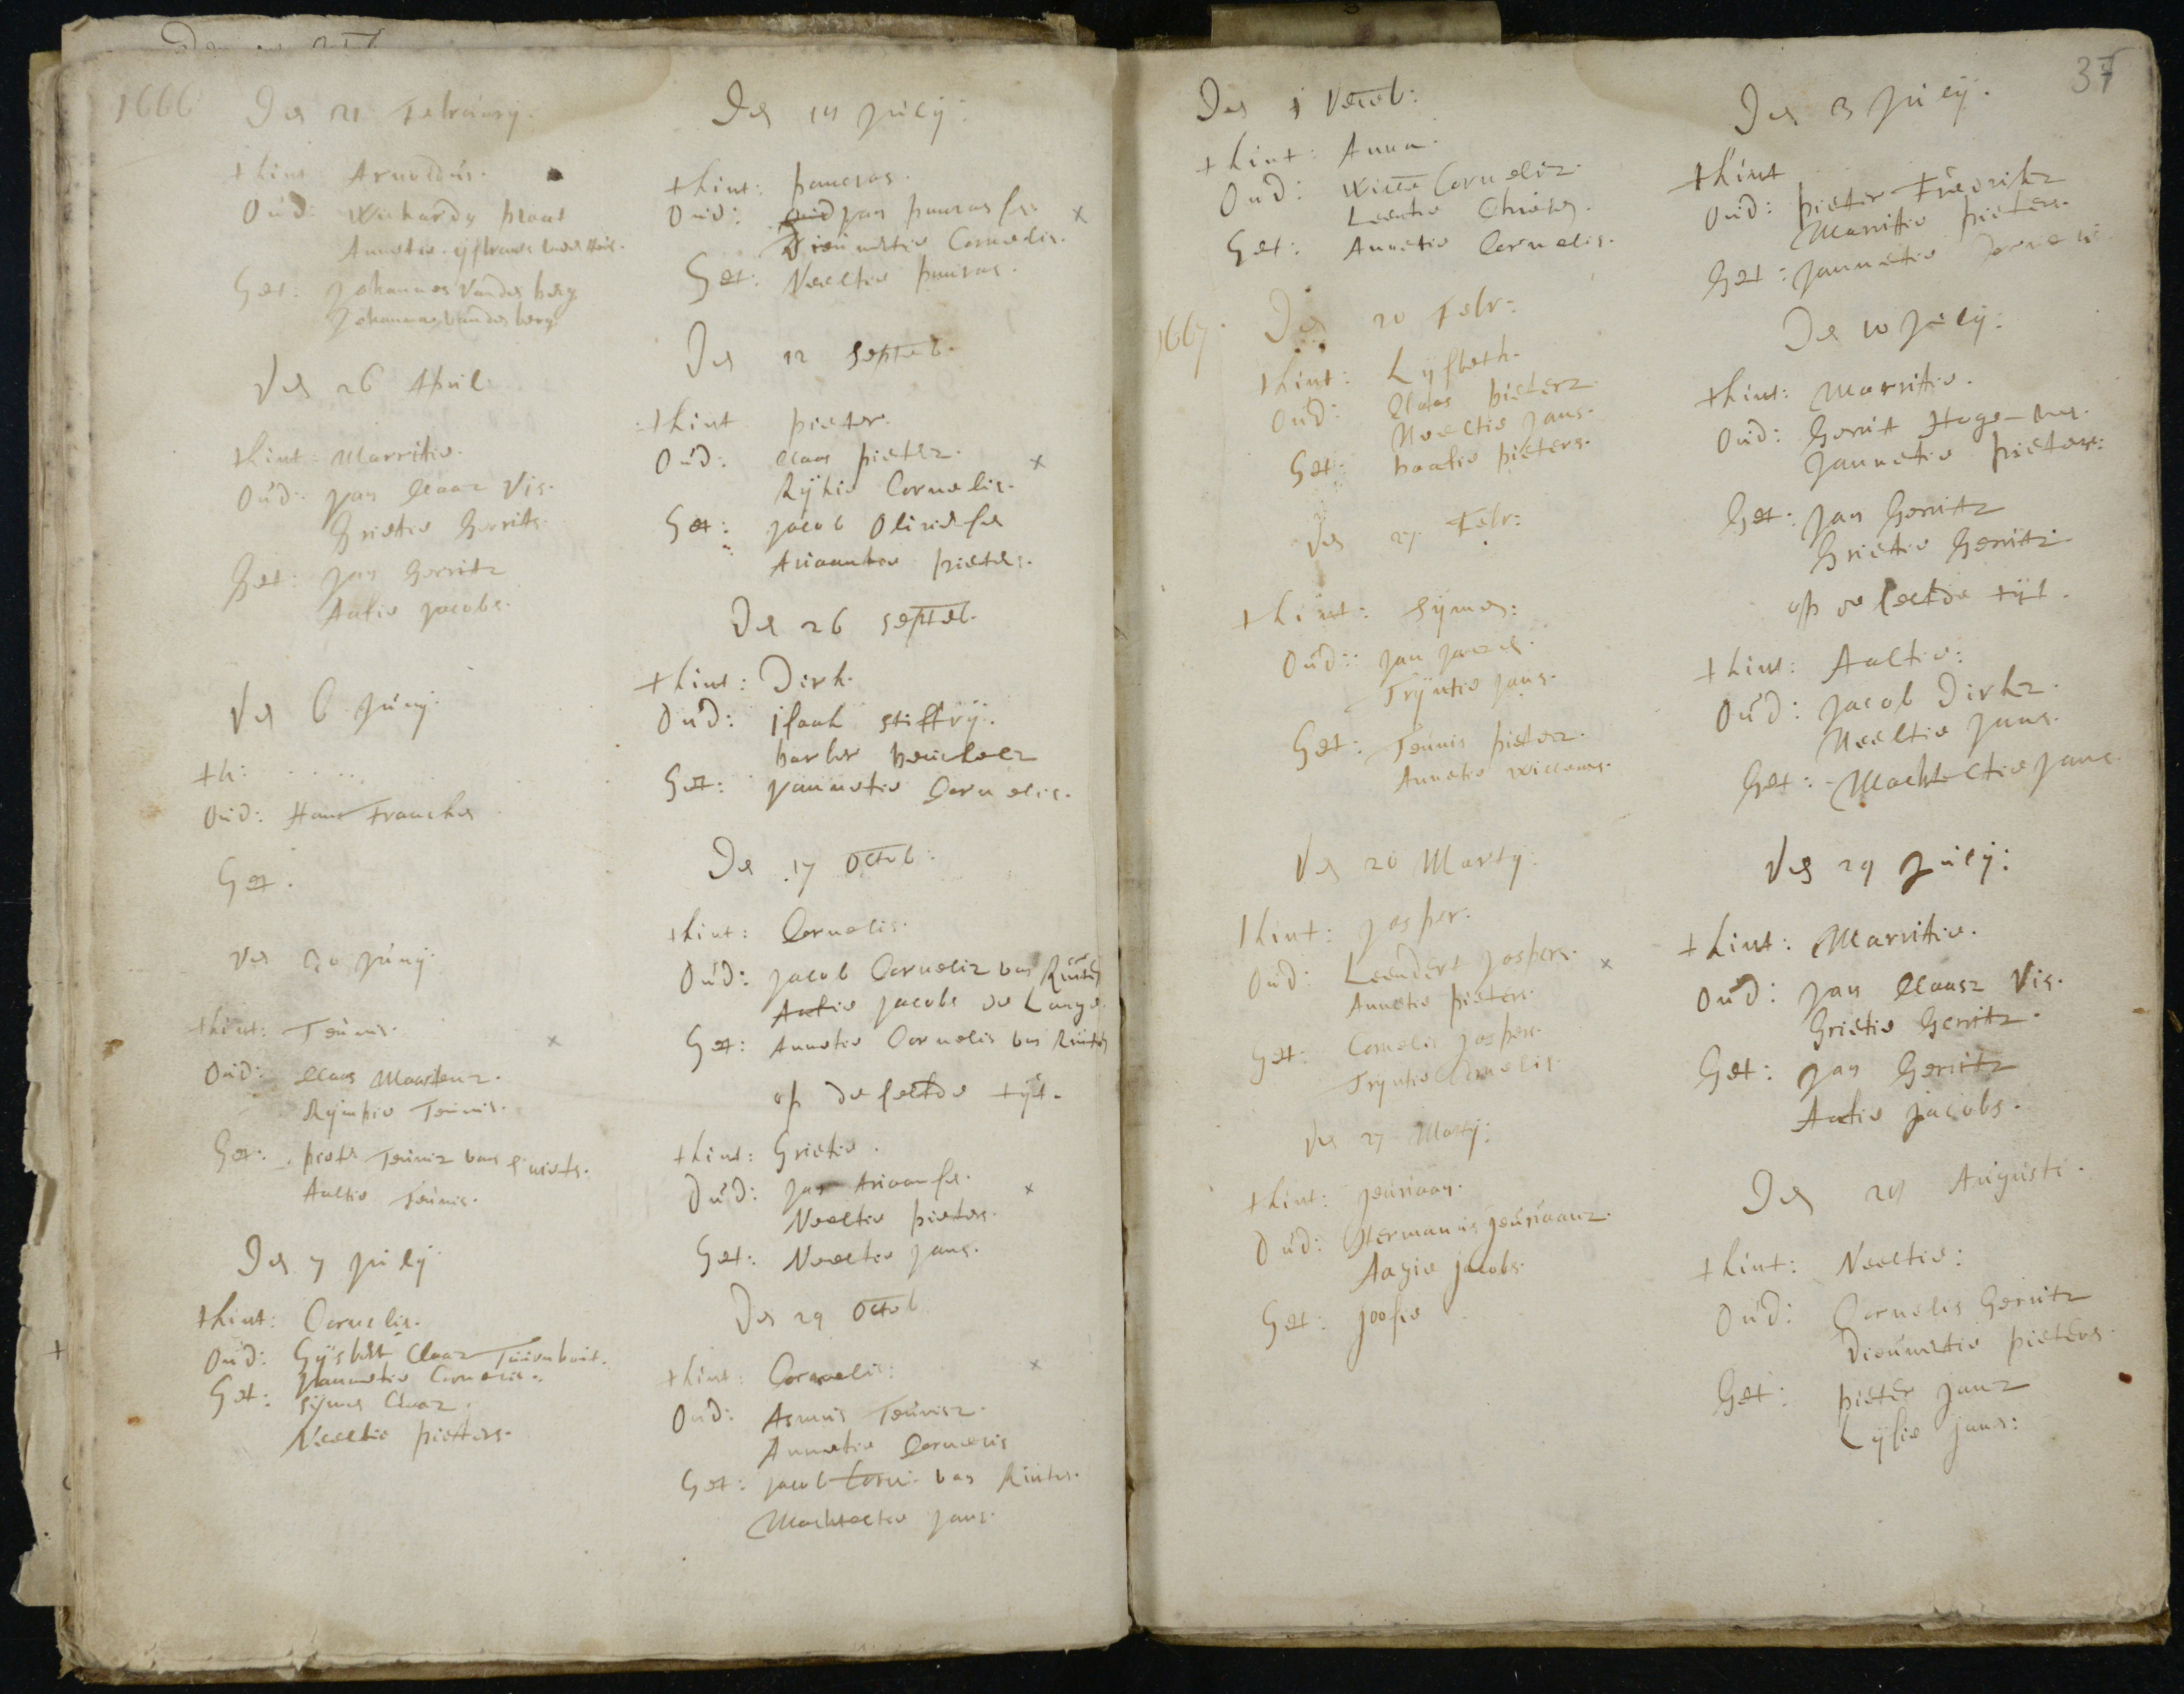 1666
Den 21 Februarij.
t kint Arnoldus.
Oud: Wichardy
Annetie
Get: Johannes Vander berg
Johanna Vander berg
Den 26 April
t kint Marritie.
Oud: Jan Claasz Vis.
Grietie Gerrits.
Get: Jan Gerritz
Aatie Jacobs.
Den 6 Junij.
t k: . . . . .
Oud: Hans Francken
Get.
Den 20 Junij.
t kint: Teunis.
Oud: Claas Maartenz.
Rympie Teunis.
Get: Pieter Teunisz van
Aaltie Teunis.
Den 7 Julij
t kint: Cornelis.
Oud: Gijsbert Claasz
Jannetie Cornelis.
Get: Symen Claasz.
Neeltie Pieters.
Den 14 Julij:
t kint: Pancras.
Oud: Jan Pancrasse. x
Dieuwertie Cornelis.
Get: Neeltie Pancras.
Den 12 Septeb.
t kint Pieter.
Oud: Claas Pieterz. x
Rijkie Cornelis.
Get: Jacob Olivierse
Ariaantie Pieters.
Den 26 Septeb.
t kint: Dirk.
Oud: Isaak Stiffry.
barber
Get: Jannetie Cornelis.
Den 17 Octob:
t kint: Cornelis.
Oud: Jacob Cornelisz van Ruiten
Aatie Jacobs de Lange.
Get: Annetie Cornelis van Ruiten
op de selfde tijt.
t kint: Grietie.
Oud: Jan Ariaanse. x
Neeltie Pieters.
Get: Neeltie Jans.
Den 29 Octob
t kint: Cornelis: x
Oud: Asmus Teunisz.
Annetie Cornelis
Get: Jacob Corn: van Ruiten.
Machteltie Jans.
37
Den 1 Deceb:
t kint: Anna.
Oud: Wille Cornelisz.
Leentie
Get: Annetie Cornelis.
1667. Den 20 Febr:
t kint: Lysbeth.
Oud: Claas Pieterz
Neeltie Jans.
Get: Pieters.
Den 27 Febr:
t kint: Symen:
Oud: Jan Janzen.
Tryntie Jans.
Get: Teunis Pieterz.
Annetie Willems.
Den 20 Martij:
t kint: Jasper.
Oud: Leendert Jaspers. x
Annetie Pieters.
Get: Cornelis Jaspers.
Tryntie Cornelis.
Den 27 Martij:
t kint: Jeuriaan.
Oud: Hermanus Jeuriaanz.
Aagie Jacobs.
Get: Joosie
Den 3 Julij.
t kint
Oud: Pieter Fredrikz
Marritie Pieters.
Get: Jannetie Cornelis
Den 10 Julij:
t kint: Marritie.
Oud: Gerrit
Jannetie Pieters:
Get: Jan Gerritz
Grietie Gerritz.
op de selfde tijt.
t kint: Aaltie:
Oud: Jacob Dirkz.
Neeltie Jans.
Get: Machteltie Jans.
Den 29 Julij:
t kint: Marritie.
Oud: Jan Claasz Vis.
Grietie Gerritz.
Get: Jan Gerritz
Aatie Jacobs.
Den 29 Augusti.
t kint: Neeltie:
Oud: Cornelis Gerritz
Dieuwertie Pieters.
Get: Pieter Janz
Lysie Jans: